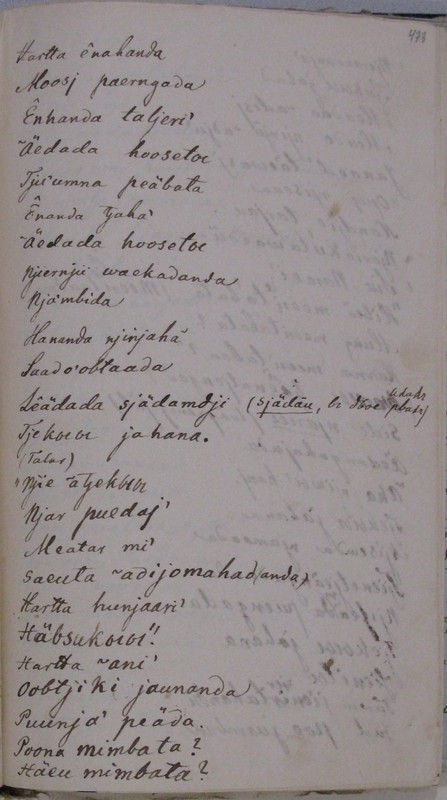 478
Hartta ênahanda
Moosj paerngada
Ênhanda taljeri'
~äedada hoosetoe
Tjiíumna peäbata
Ênanda tjahá
~äedada hoosetoe
Njiernjii waekadanda
Njámbida
Hananda njinjahá
Saadoobtaada
Lêädada sjädamdji (sjädäu,
Tjekoca jahana.
(Talar)
Njie ~atjekoca
Njar puedaj'
Meatar mi'
saeuta ~adijomahad(anda)
Hartta hunjaari'
Häbsukocoi"!
Hartta ~ani'
Oobtjiki jaunanda
Puunjá peäda.
Poona mimbata?
Häeu mimbata?